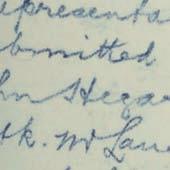 epresenta
bmitted
hn Hega
tk. Mr Lau